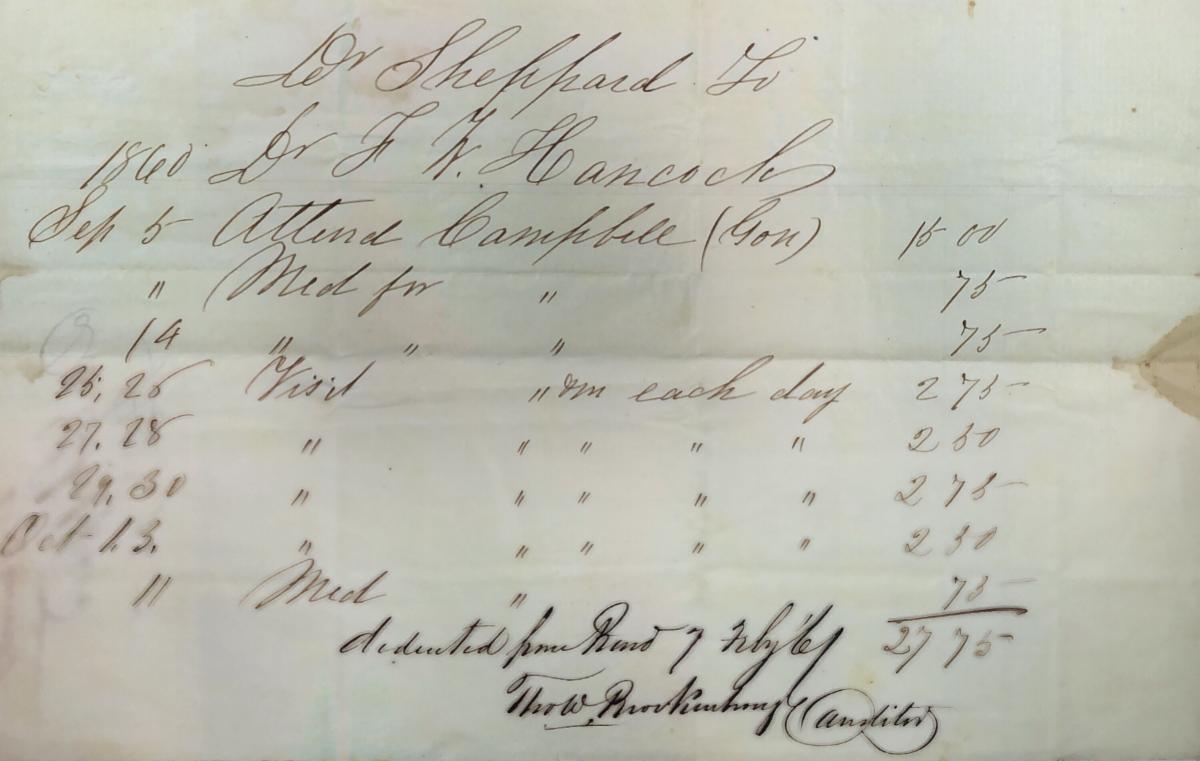 Dr Sheppard To
1860 Dr F W. Hancock
Sep 5 Attend Campbell (Gon) 15 00
" Med for " 75
14 " " " 75
25, 26 Visit " &m each day 2 75
27, 28 " " " " " 2 50
29, 30 " " " " " 2 75
Oct 1. 3. " " " " " 2 50
11 Med " 75
deducted from Rent 7 Feby '61 27 75
Tho W. Brockenbroug (Auditor)